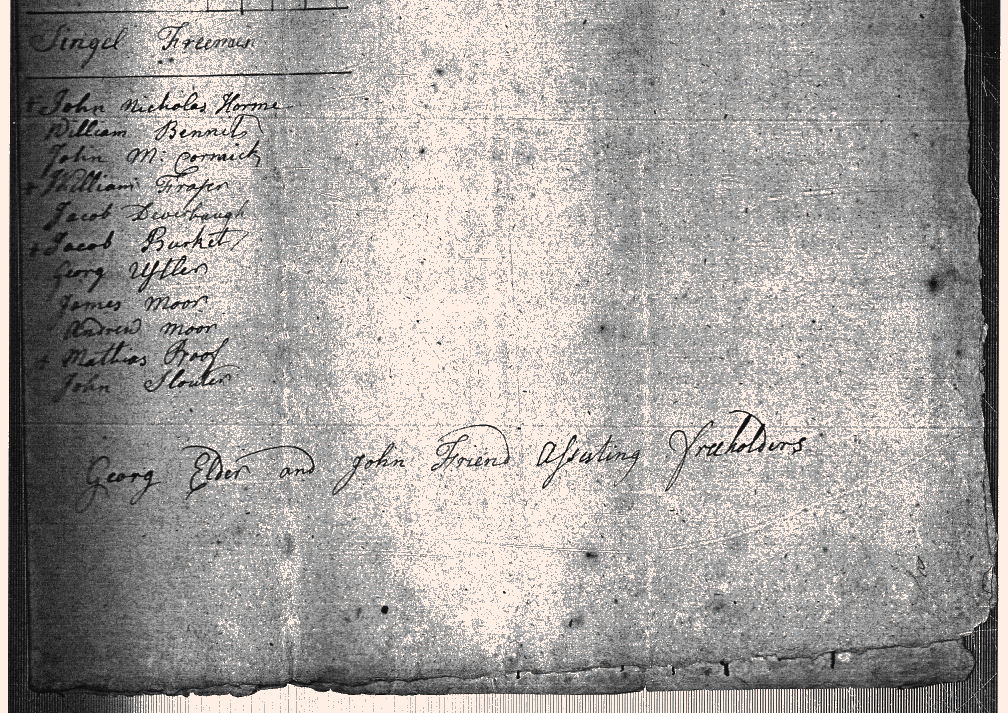 Singel Freemen
+ John Nicholas Horme
William Bennit
John Mc: Cormick
+ William Fraser
Jacob Deverbaugh
+ Jacob Burket
Georg
James Moor
Andrew Moor
+ Mathias Proof
John
Georg Elder and John Friend Assisting freeholders